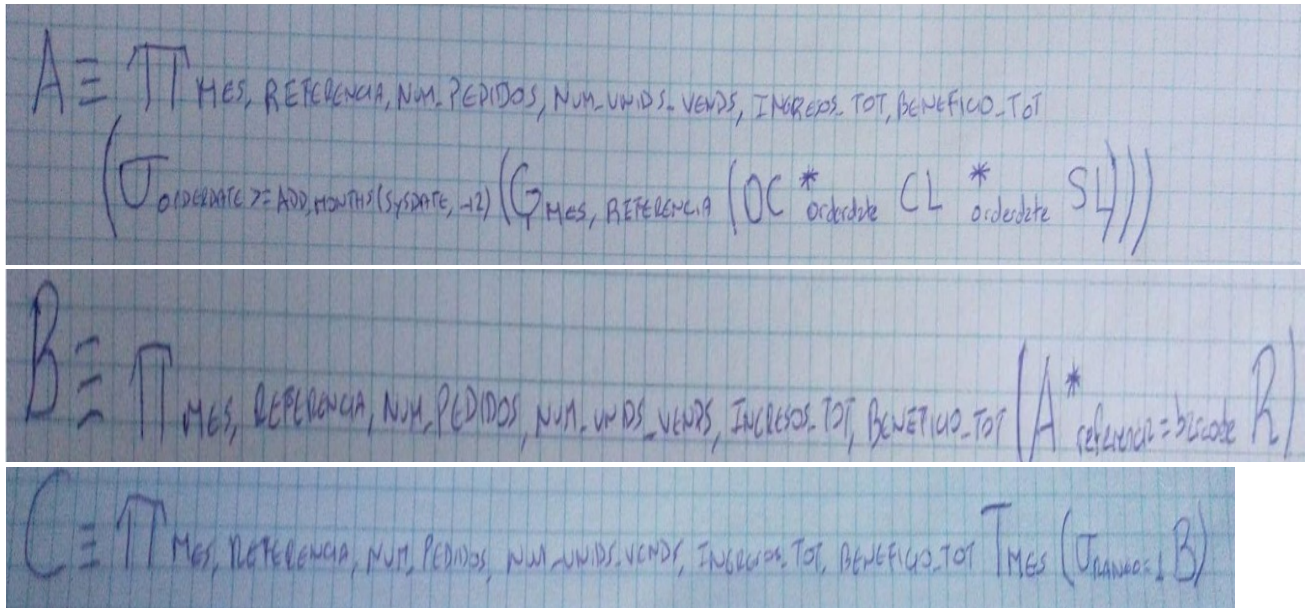 A ≡ π MES, REFERENCIA, NUM_PEDIDOS, NUM_UNIDS_VENDS, INGRESOS_TOT, BENEFICIO_TOT
(σ ORDERDATE >= ADD_MONTHS(SYSDATE, -12) (G MES, REFERENCIA (OC * orderdate CL * orderdate SL)))
B ≡ π MES, REFERENCIA, NUM_PEDIDOS, NUM_UNIDS_VENDS, INGRESOS_TOT, BENEFICIO_TOT (A * referencia = barcode R)
C ≡ π MES, REFERENCIA, NUM_PEDIDOS, NUM_UNIDS_VENDS, INGRESOS_TOT, BENEFICIO_TOT T MES (σ RANGO=1 B)